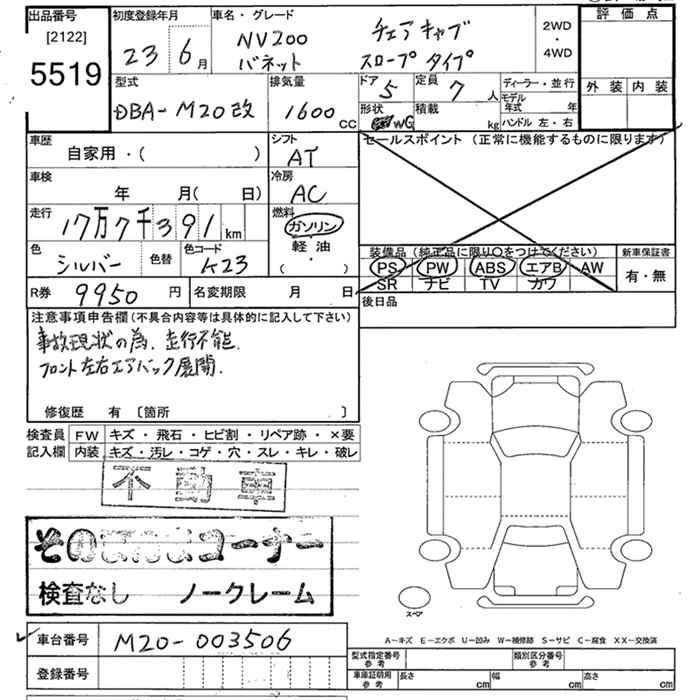 出品番号 初度登録年月 車名・グレード 評価点
[2122] NV200 チェアキャブ 2WD
5519 23 6月 バネット スロープタイプ ・ 4WD
型式 排気量 ドア 定員 ディーラー・並行 外装 内装
DBA-M20改 1600cc 5 7人 モデル年式 年
形状 積載 kg ハンドル 左・右
WG
車歴 自家用・( ) シフト AT セールスポイント (正常に機能するものに限ります)
車検 年 月( 日) 冷房 AC
走行 17万7千391km 燃料 ガソリン
軽油
( ・ )
色 シルバー 色替 色コード K23
装備品 (純正品に限り○をつけてください) 新車保証書
PS PW ABS エアB AW 有・無
SR ナビ TV カワ
R券 9950円 名変期限 月 日 後日品
注意事項申告欄 (不具合内容等は具体的に記入して下さい)
事故現状の為、走行不能.
フロント左右エアバック展開.
修復歴 有 [箇所 ]
検査員 FW キズ・飛石・ヒビ割・リペア跡・×要
記入欄 内装 キズ・汚レ・コゲ・穴・スレ・キレ・破レ
不動車
そのまんまコーナー
検査なし ノークレーム
スペア
A-キズ E-エクボ U-凹み W-補修跡 S-サビ C-腐食 XX-交換済
車台番号 M20-003506
型式指定番号 参考 類別区分番号 参考
登録番号
車庫証明用 参考 長さ cm 幅 cm 高さ cm